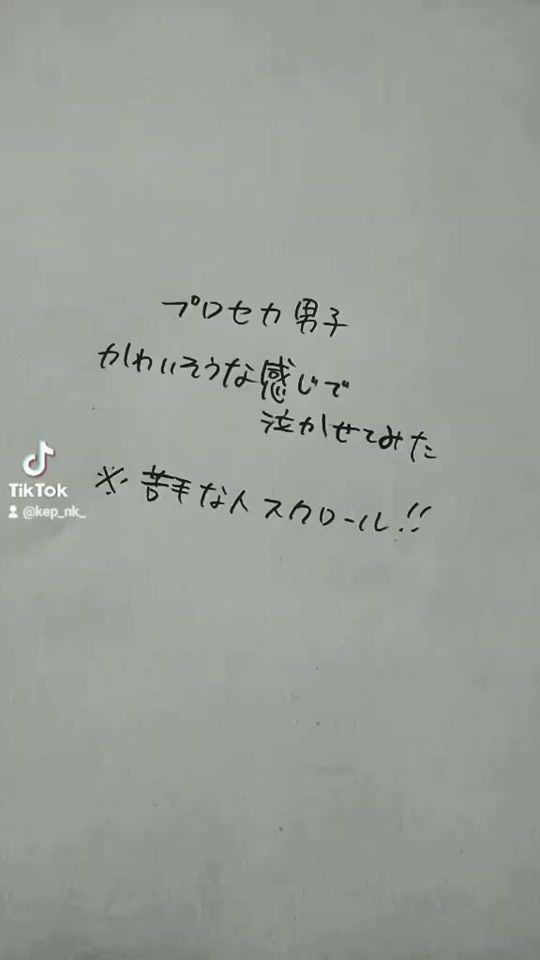 プロセカ男子
かわいそうな感じで
泣かせてみた
※苦手な人スクロール!!
TikTok
@kep_nk_